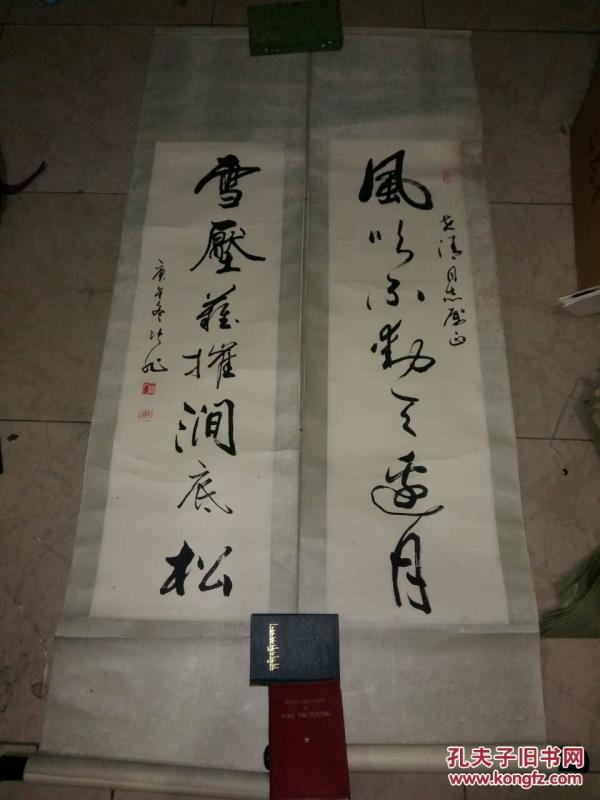 風吹不動天邊月
志清同志属正
雪壓難摧澗底松
庚午冬
MAO TSE-TUNG
孔夫子旧书网
www.kongfz.com